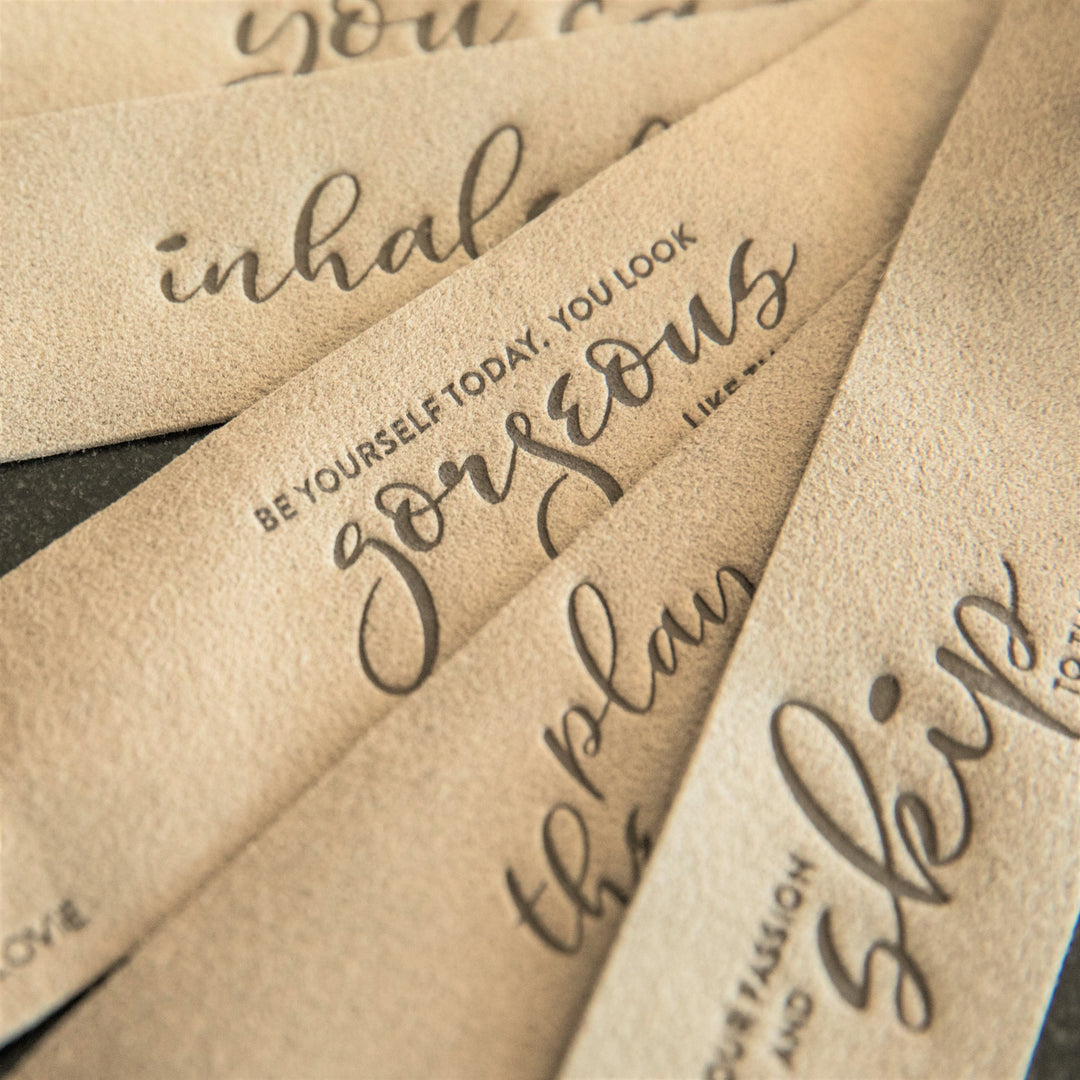 you
inhale
BE YOURSELF TODAY, YOU LOOK
gorgeous
LIKE
plan
the
PASSION
AND
skip
TO